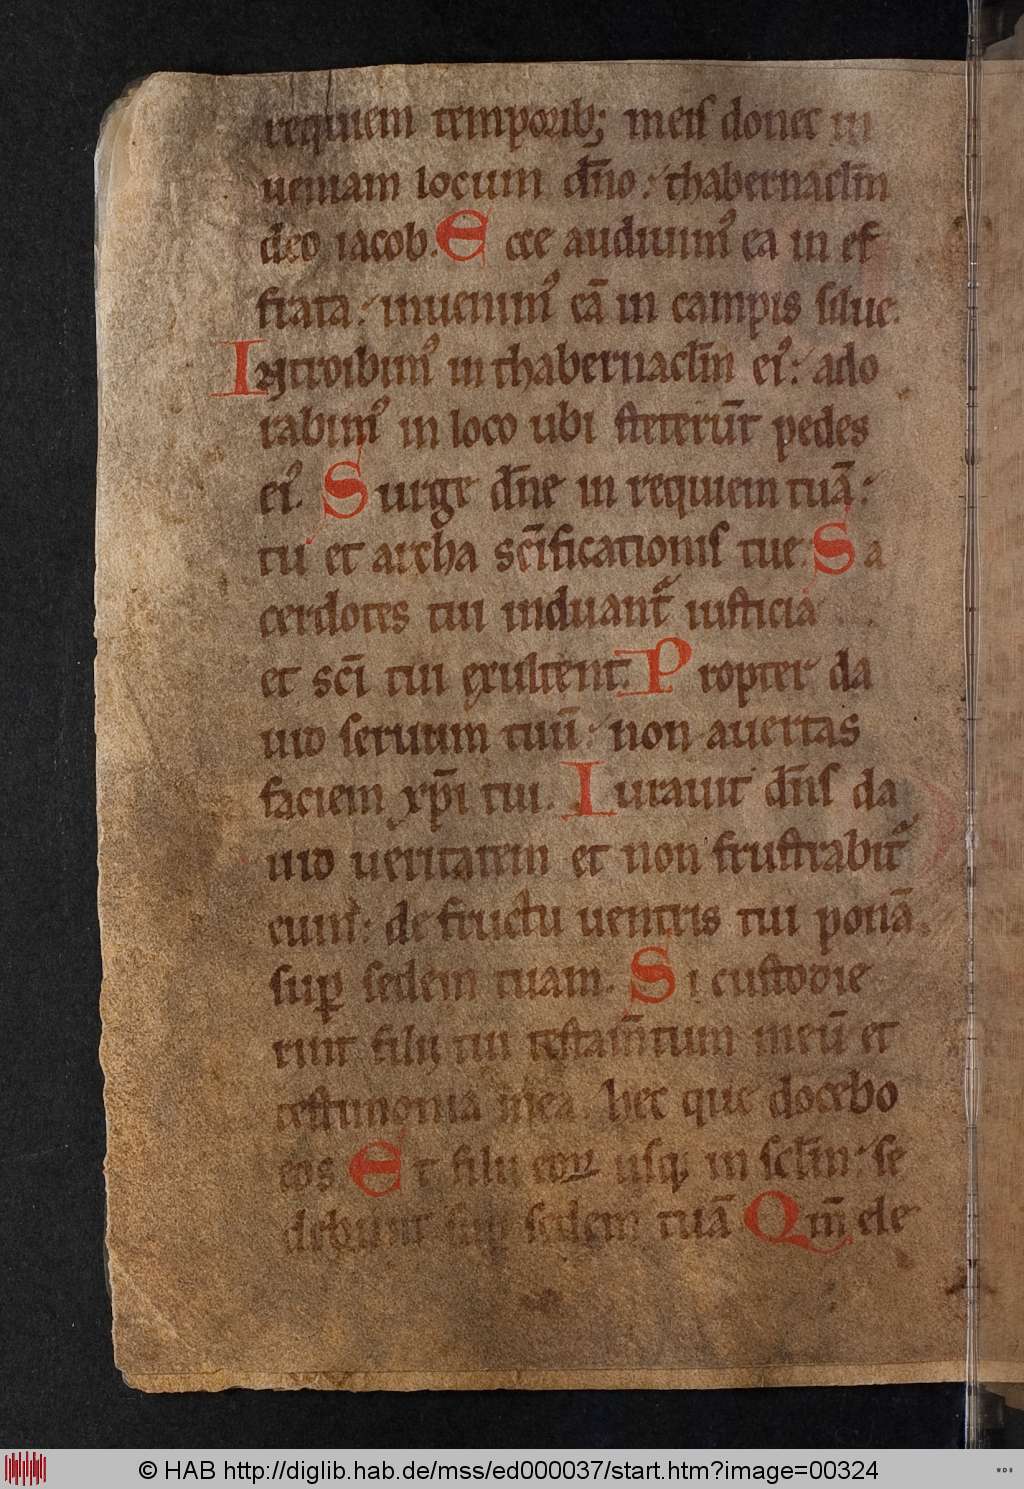 requiem temporib; meis donec in
ueniam locum dn̄o: thabernacl̄m
deo iacob. Ecce audiuim᾽ ea in ef
frata: inuenim᾽ eā in campis silue.
Introibim᾽ in thabernacl̄m ei᾽: ado
rabim᾽ in loco ubi steterūt pedes
ei᾽. Surge dn̄e in requiem tuā:
tu et archa scīficationis tue. Sa
cerdotes tui induant᾽ iusticiā
et scī tui exultent. Propter da
uid seruum tuū: non auertas
faciem xp̄i tui. Iurauit dn̄s da
uid ueritatem et non frustrabit᾽
eum: de fructu uentris tui ponā
sup̄ sedem tuam. Si custodie
rint filii tui testam̄tum meū et
testimonia mea hec que docebo
eos. Et filii eoꝝ usq; in scl̄m: se
debunt sup̄ sedem tuā. Qm̄ ele
© HAB http://diglib.hab.de/mss/ed000037/start.htm?image=00324